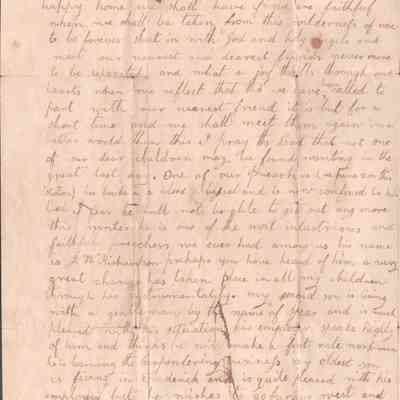 happy home we shall have if we are faithful
when we shall be taken from this wilderness of woe
to be forever shut in with God and holy angels and
meet our nearest and dearest friends never more
to be separated and what a joy thrills through our
hearts when we reflect that tho we have called to
part with our nearest friend it is but for a
short time and we shall meet them again in a
better world than this I pray the Lord that not one
of our dear children may be found wanting in the
great last day. One of our Preachers on this
he broke a blood vessel and is now confined to his
bed I fear he will not be able to get out any more
this winter he is one of the most industrious and
faithful preachers we ever had among us his name
is Richardson perhaps you have heard of him a very
great change has taken place in all my children
through his instrumentality. my second son is living
with a gentleman by the name of and is much
pleased with his situation his employer speaks highly
of him and thinks he will make a first rate workman
he is learning the carpentering business my oldest son
is living in Frederick and is quite pleased with his
employer but he wishes to go further west and